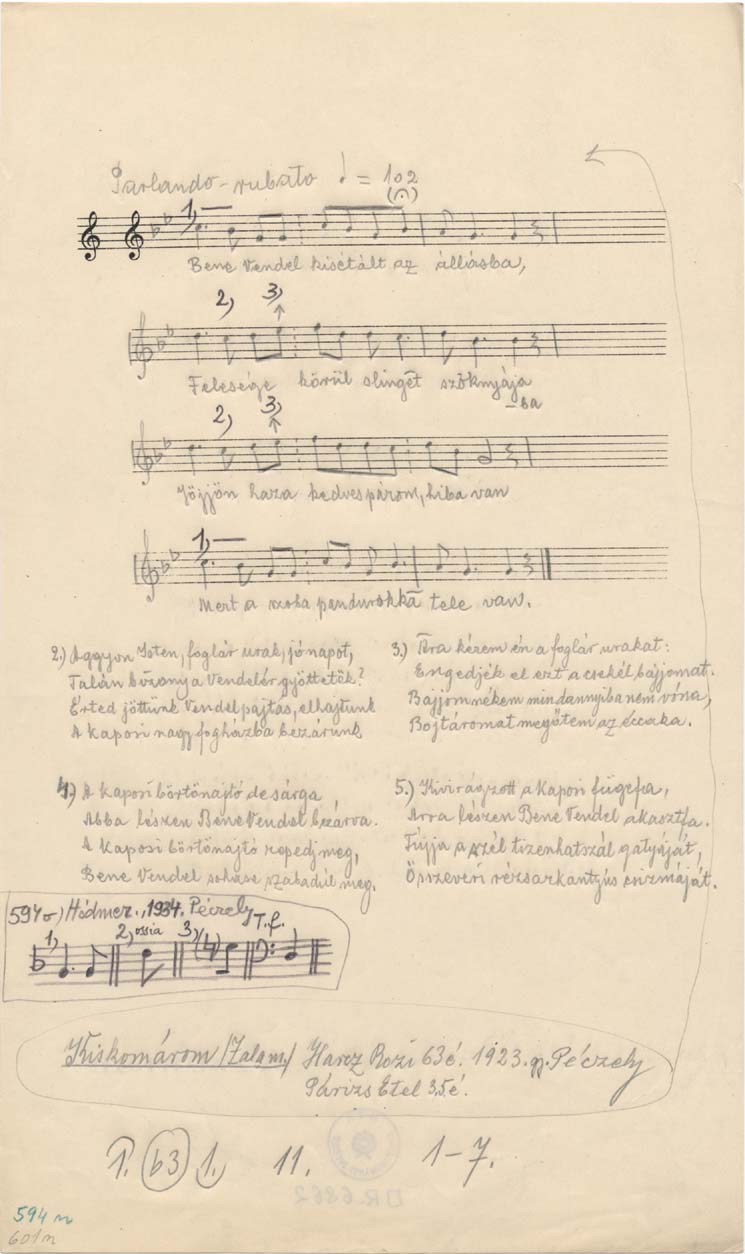 Parlando-rubato ♩ = 102
1,
Bene Vendel kisétált az állásba,
2, 3,
Felesége körül slingët szoknyája
-ba
2, 3,
Jöjjön haza kedves párom, hiba van
1,
Mert a szoba pandurokkā tele van.
2.) Aggyon Isten, foglár urak, jó napot,
Talán bizony a Vendelér gyöttetök?
Érted jöttünk Vendel pajtás, elhajtunk
A kapori nagy fogházba bezárunk
3.) Arra kérem én a foglár urakat:
Engedjék el ezt a csekél bajjomat.
Bajjom nékem mindannyiba nem vóna,
Bojtáromat megőtem az éccaka.
4.) A kaposi börtönajtó de sárga
Abba lészen Bene Vendel bezárva.
A kaposi börtönajtó repedj meg,
Bene Vendel sohase szabadúl meg.
5.) Kivirágzott a kapori fügefa,
Arra lészen Bene Vendel akasztfa.
Fújja a szél tizenhatszál gatyáját,
Összeveri rézsarkantyús csizmáját.
594o) Hódmez., 1934. Péczely T.f.
1, 2, ossia 3,
Kiskomárom (Zala m.) Harcz Rozi 63 é. 1923. gy. Péczely
Párizs Etel 35 é.
1. 63 1. 11. 1-7.
DR.6862
594 n
601 n